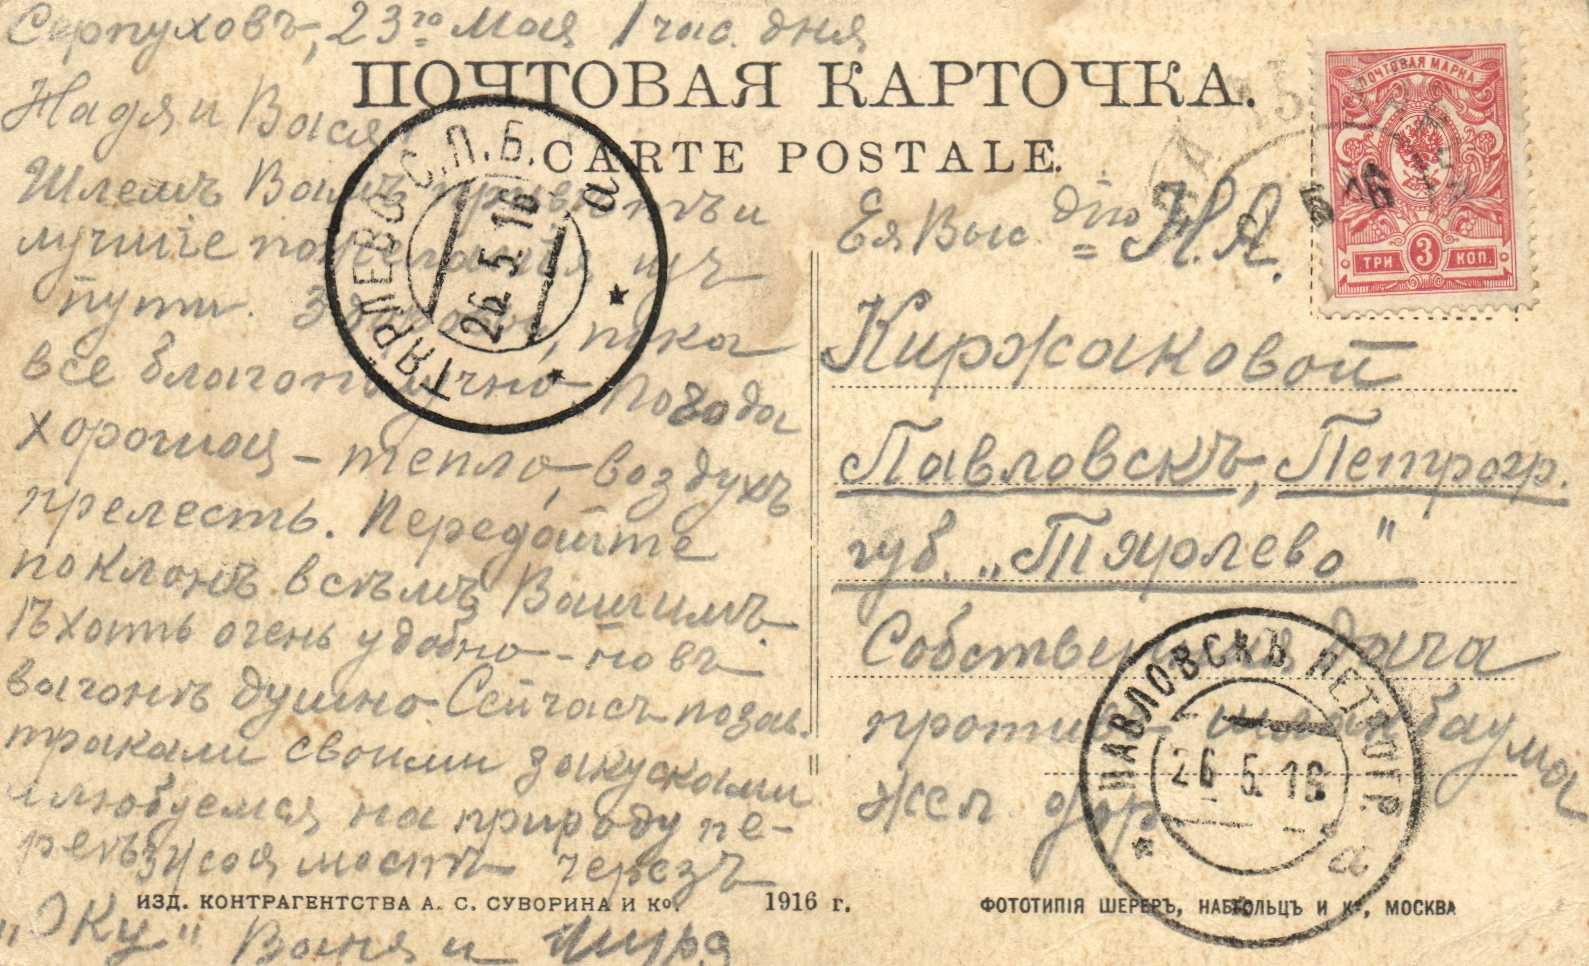 Серпуховъ, 23го Мая 1 час. дня
ПОЧТОВАЯ КАРТОЧКА.
CARTE POSTALE.
Надя и Вася!
Шлемъ Вамъ привѣтъ и
лучшіе пожеланія, изъ
пути. Здоровы, пока
все благополучно. Погода
хорошая – тепло, воздухъ
прелесть. Передайте
поклонъ всѣмъ Вашимъ.
Ѣхать очень удобно – но въ
вагонѣ душно. Сейчасъ позав.
тракали своими закусками
и любуемся на природу пе-
реѣзжая мостъ черезъ
"Оку" Ваня и
ПОЧТОВАЯ МАРКА
ТРИ 3 КОП.
Ея Выс дію Н.А.
Киржаковой
Павловскъ, Петрогр.
губ. „Тярлево"
Собственная дача
против шлакбаума
жел дор
ТЯРЛЕВО С.П.Б.
26.5.16
а
ПАВЛОВСКЪ ПЕТРОГР.
26.5.16
а
ИЗД. КОНТРАГЕНТСТВА А. С. СУВОРИНА И Ко.
1916 г.
ФОТОТИПІЯ ШЕРЕРЪ, НАБГОЛЬЦЪ И Ко, МОСКВА